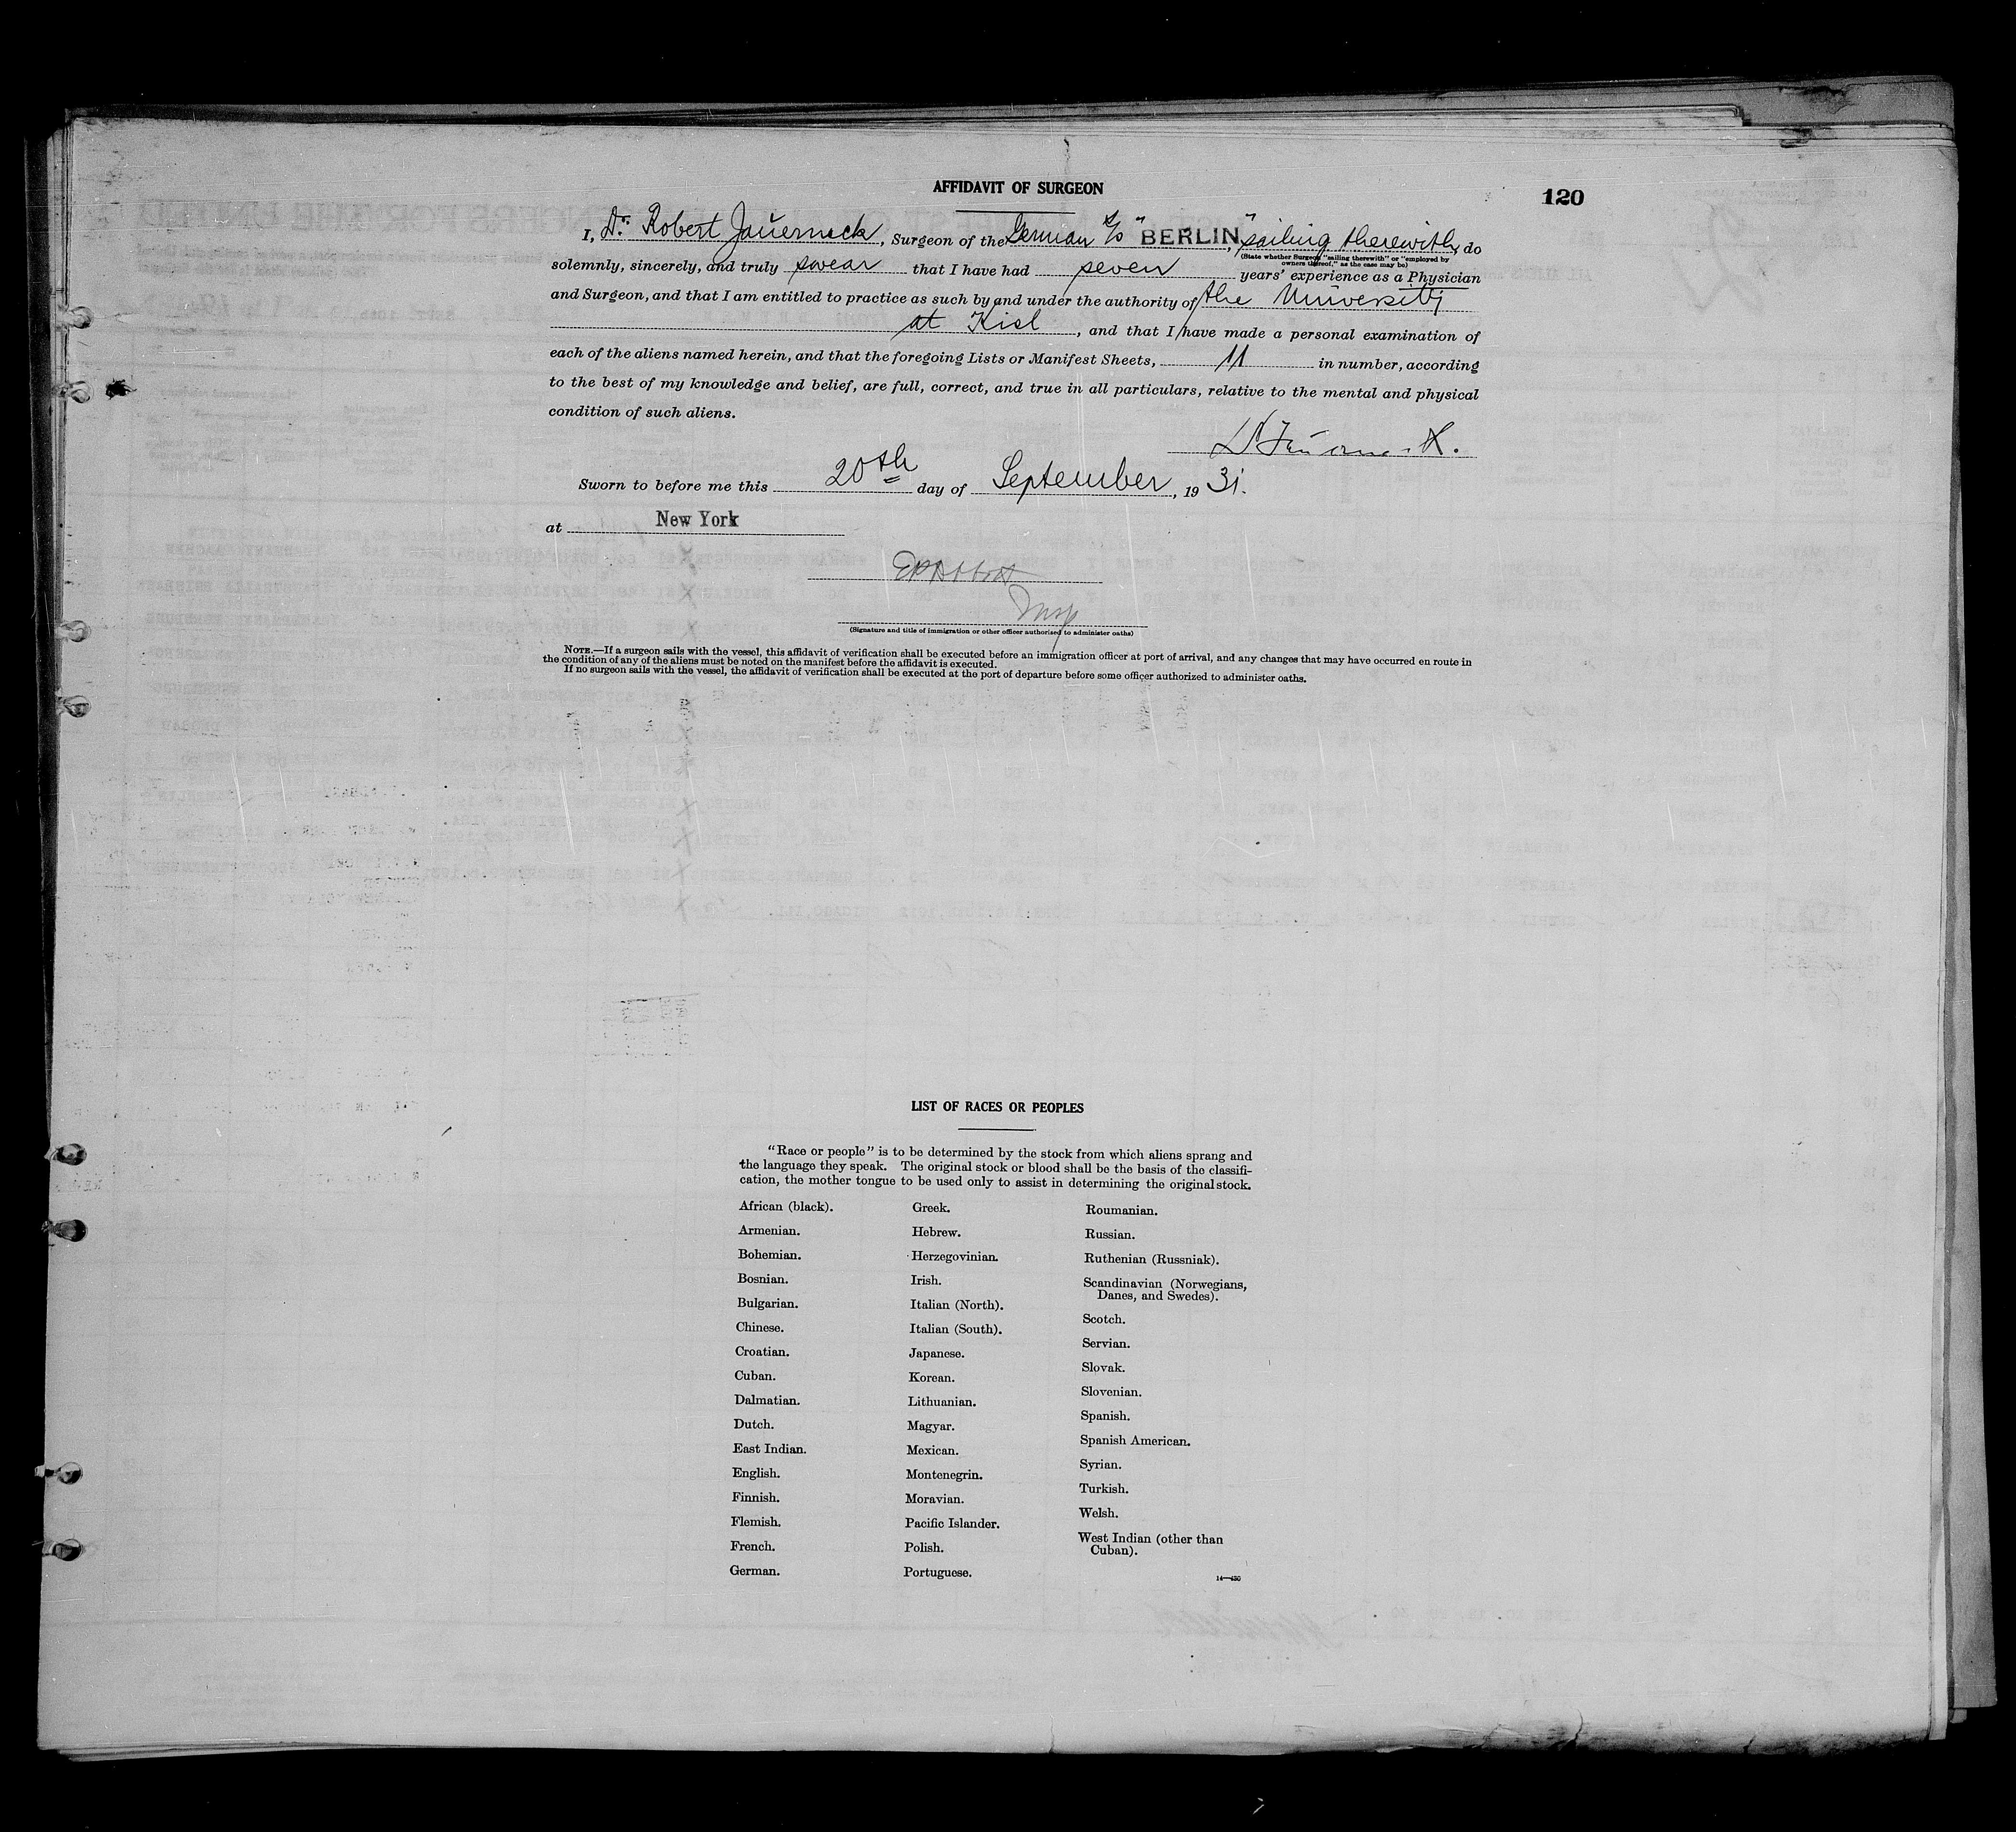 AFFIDAVIT OF SURGEON
120
I, Dr. Robert Jauerneck, Surgeon of the German s/s "BERLIN," sailing therewith, do
(State whether Surgeon "sailing therewith" or "employed by
owners thereof," as the case may be)
solemnly, sincerely, and truly swear that I have had seven years' experience as a Physician
and Surgeon, and that I am entitled to practice as such by and under the authority of the University
at Kiel, and that I have made a personal examination of
each of the aliens named herein, and that the foregoing Lists or Manifest Sheets, 11 in number, according
to the best of my knowledge and belief, are full, correct, and true in all particulars, relative to the mental and physical
condition of such aliens.
Sworn to before me this 20th day of September, 1931.
at New York
Insp
(Signature and title of immigration or other officer authorized to administer oaths)
NOTE.—If a surgeon sails with the vessel, this affidavit of verification shall be executed before an immigration officer at port of arrival, and any changes that may have occurred en route in
the condition of any of the aliens must be noted on the manifest before the affidavit is executed.
If no surgeon sails with the vessel, the affidavit of verification shall be executed at the port of departure before some officer authorized to administer oaths.
LIST OF RACES OR PEOPLES
"Race or people" is to be determined by the stock from which aliens sprang and
the language they speak. The original stock or blood shall be the basis of the classifi-
cation, the mother tongue to be used only to assist in determining the original stock.
African (black).
Armenian.
Bohemian.
Bosnian.
Bulgarian.
Chinese.
Croatian.
Cuban.
Dalmatian.
Dutch.
East Indian.
English.
Finnish.
Flemish.
French.
German.
Greek.
Hebrew.
Herzegovinian.
Irish.
Italian (North).
Italian (South).
Japanese.
Korean.
Lithuanian.
Magyar.
Mexican.
Montenegrin.
Moravian.
Pacific Islander.
Polish.
Portuguese.
Roumanian.
Russian.
Ruthenian (Russniak).
Scandinavian (Norwegians,
Danes, and Swedes).
Scotch.
Servian.
Slovak.
Slovenian.
Spanish.
Spanish American.
Syrian.
Turkish.
Welsh.
West Indian (other than
Cuban).
14—430